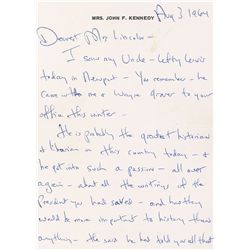 MRS. JOHN F. KENNEDY
Aug 3 1964
Dearest Mrs Lincoln -
I saw my Uncle - Lefty Lewis
today in Newport - You remember - he
came with me & Wayne to your
office this winter -
He is probably the greatest historian
& librarian in this country today - &
he got into such a passion - all over
again - about all the writings of the
president you had saved - and how they
would be more important to history than
anything - He said he had told you all that